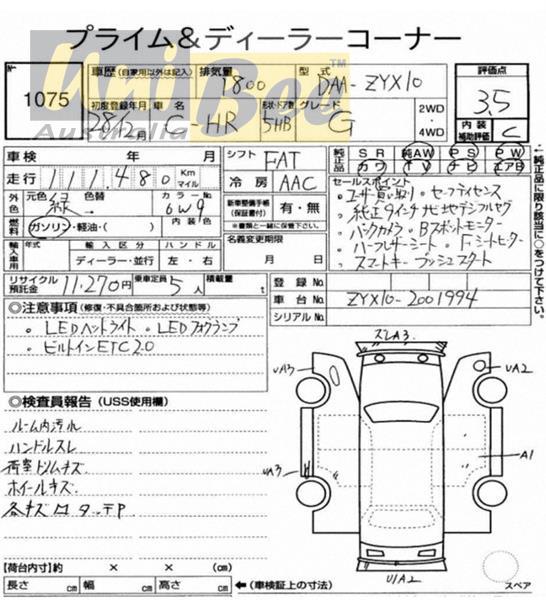 プライム&ディーラーコーナー
№ 1075
車歴 (自家用以外は記入) 排気量 型式 評価点
1800 DAA-ZYX10 3.5
初度登録年月 車名 形状・ドア数 グレード 2WD・4WD 内装補助評価 C
28/12月 C-HR 5HB G
UniBee
Australia
TM
車検 年 月
走行 111,480 Km マイル
シフト FAT
冷房 AAC
純正品 SR 純AW PS PW
カワ TV ナビ エアB
外装 元色 緑 色替 カラーNo 6W9
燃料 ガソリン・軽油・( ) 内装色
新車整備手帳(保証書付) 有・無
※書類と一緒に保管して下さい。
名義変更期限 月 日
輸入車用 年式 輸入区分 ハンドル
ディーラー・並行 左・右
セールスポイント
・ユーザー買い取り ・セーフティセンス
・純正9インチナビ地デジフルセグ
・バックカメラ ・Bスポットモニター
・ハーフレザーシート ・Fシートヒーター
・スマートキー プッシュスタート
↓純正品に限り該当に○をつけて下さい。
リサイクル預託金 11,270円 乗車定員 5人 積載量 t
登録No.
車台No. ZYX10-2001994
シリアルNo.
◎注意事項 (修復・不具合箇所および状態等)
・LEDヘッドライト ・LEDフォグランプ
・ビルトインETC2.0
◎検査員報告 (USS使用欄)
ルーム内汚れ
ハンドルスレ
ホイールキズ
A3
UA3
UA2
UA3
A1
U1A2
スペア
【荷台内寸】約 × × (cm)
長さ cm 幅 cm 高さ cm ←(車検証上の寸法)